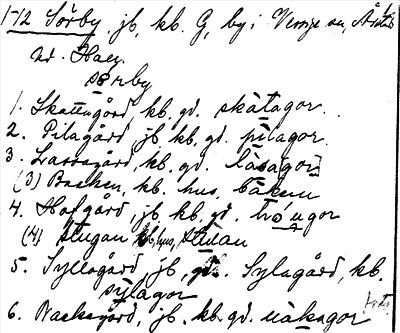 1-12 Sörby, jb, kb. G, by i Vemge sn, Årstads
hd. Hall.
sörby
1. Skattagård, kb. gd. skàtagor.
2. Pilagård jb, kb, gd. pìlagor.
3. Lassagård, kb. gd. làsagor
(3) Backen, kb. hus, bàken
4. Hofgård, jb. kb, gd.
(4) Stugan kb, hus, stuan
5. Syllagård, jb, gd. Sylagård, kb.
sylagor
6. Nacksgård, jb. kb. gd nàksagor